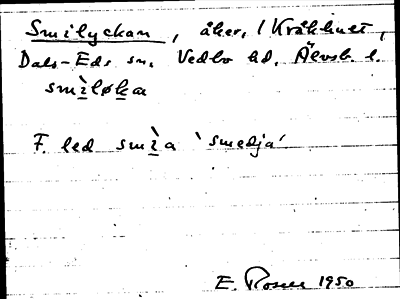 Smilyckan, åker, i Kråkhult,
Dals-Eds sn. Vedbo hd, Älvsb. l.
smìløka
F. led smìa 'smedja'
E. Rosell 1950